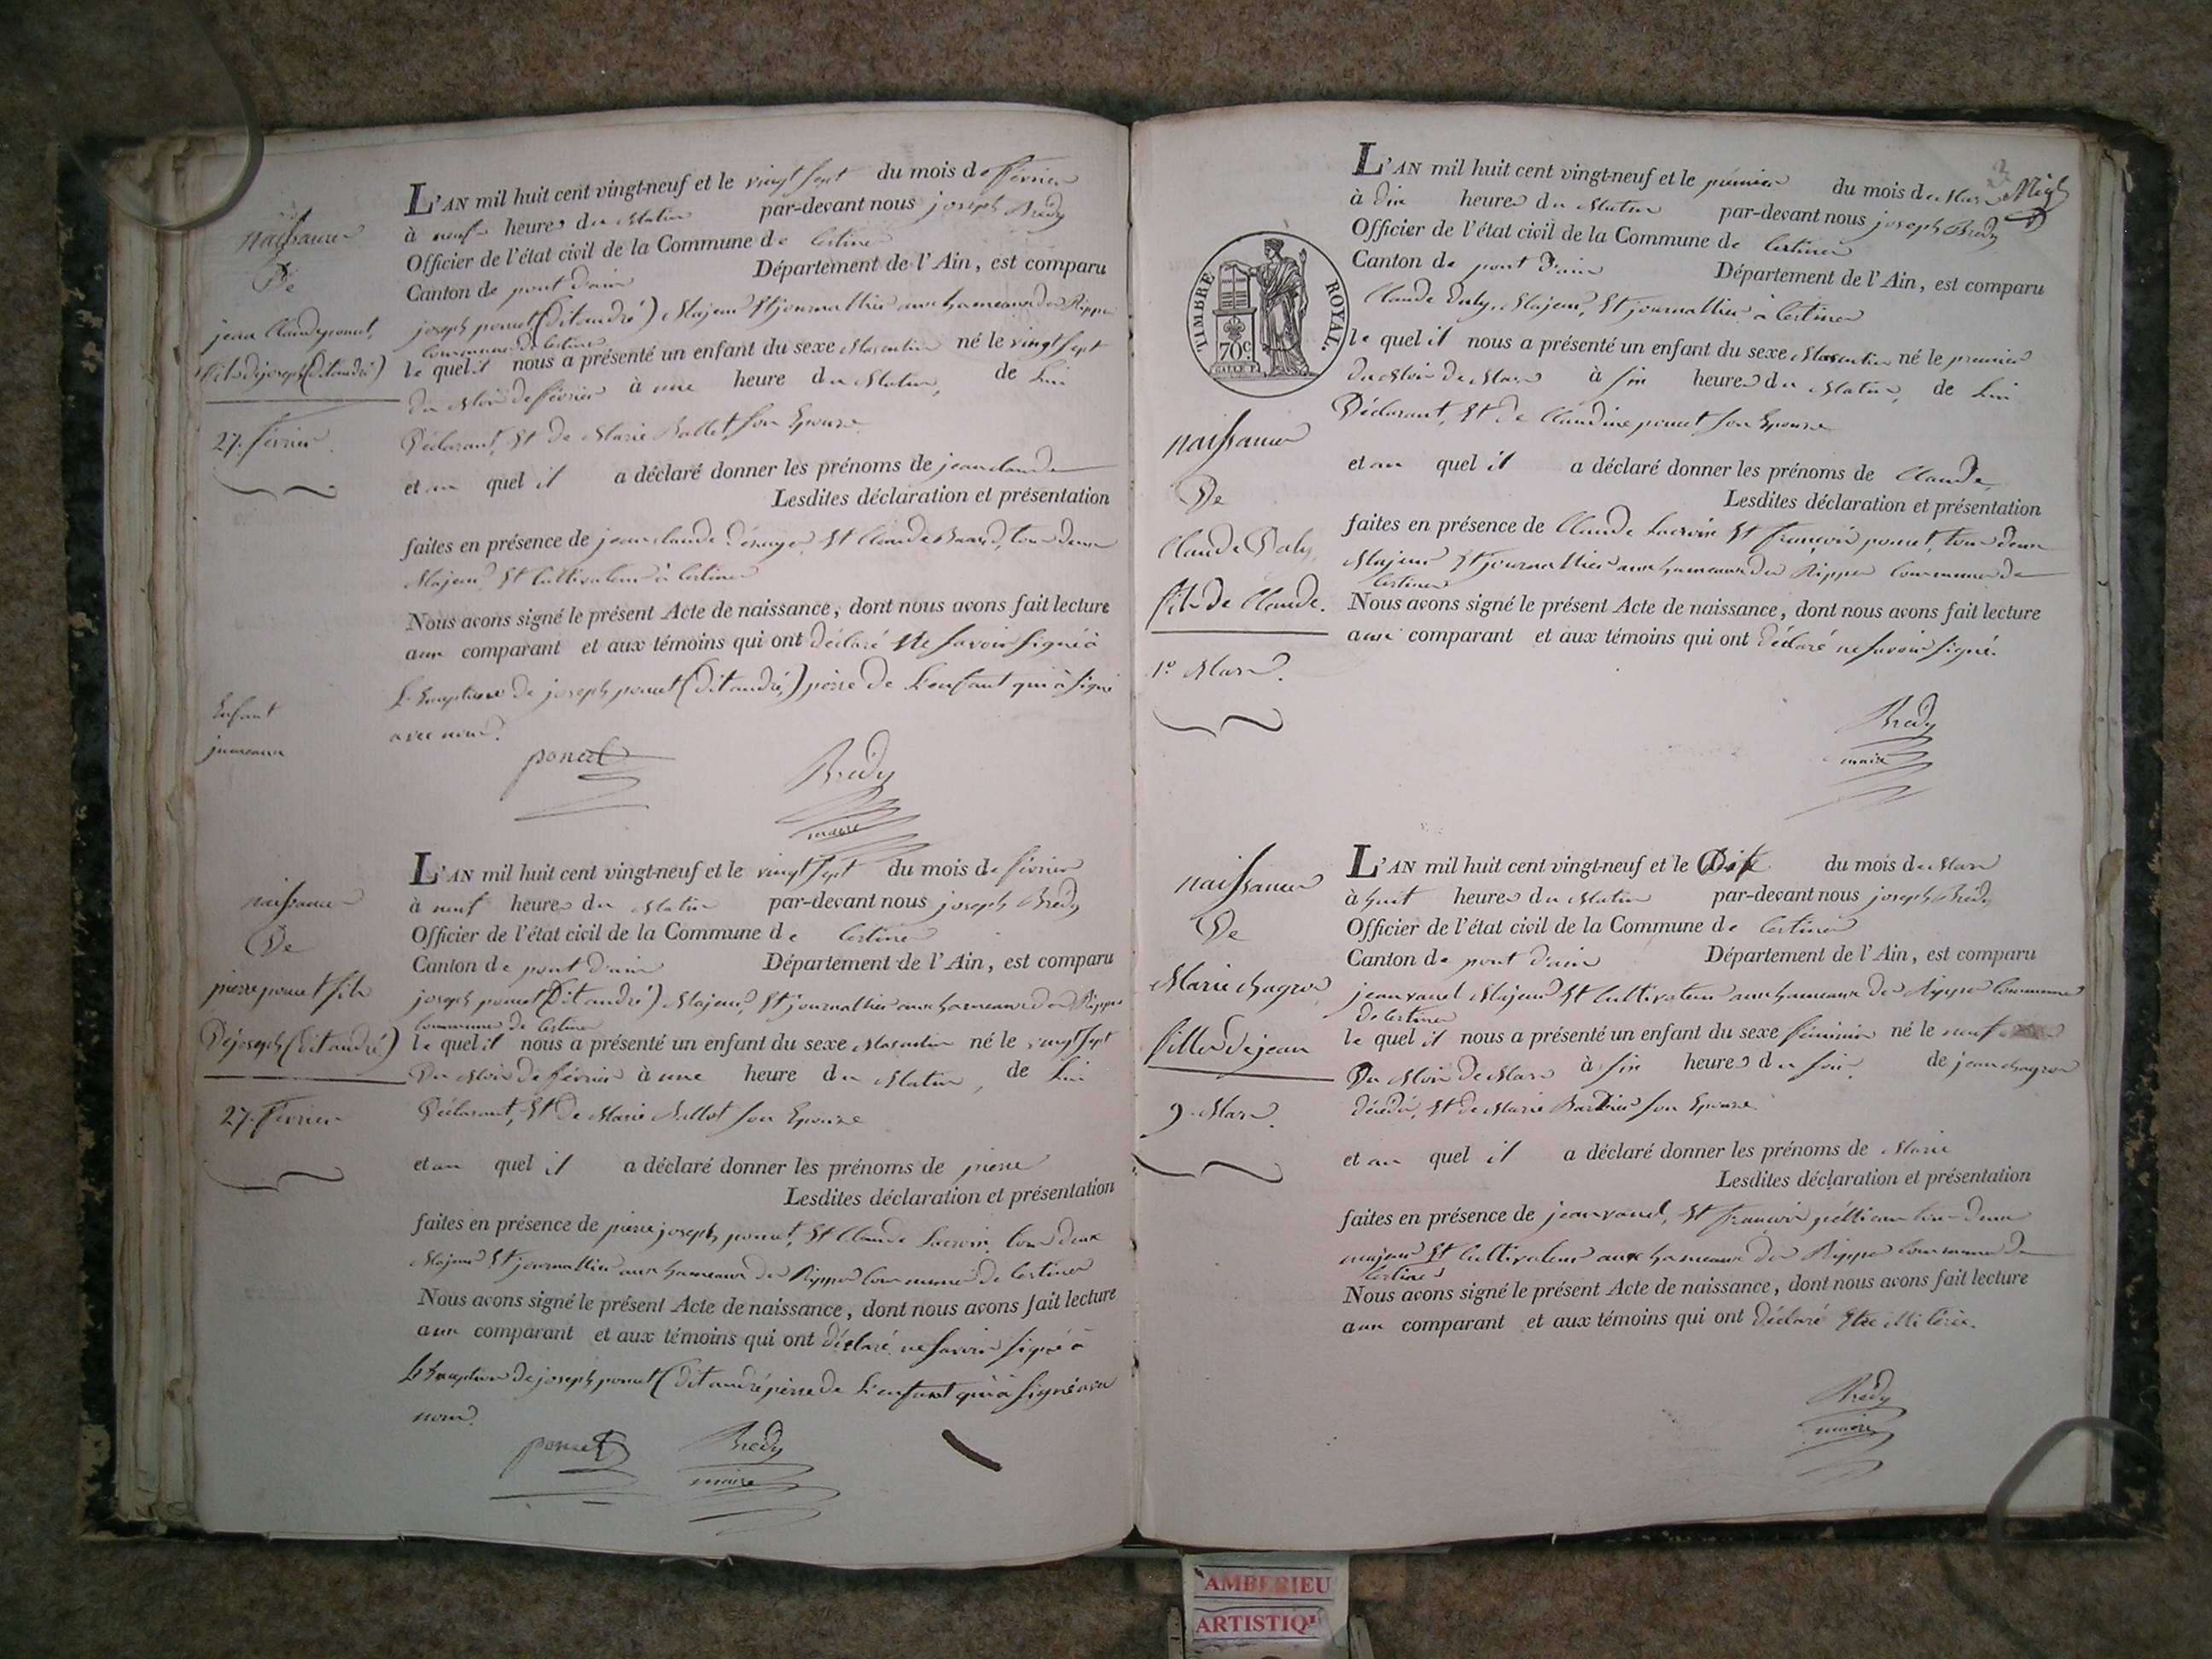 naissance
De
jean Claude poncet,
fils de joseph (dit andré)
27. février
L'AN mil huit cent vingt-neuf et le vingt sept du mois de février
à neuf heures du Matin par-devant nous joseph Bredy
Officier de l'état civil de la Commune de Certines
Canton de pont d'ain Département de l'Ain, est comparu
joseph poncet (dit andré) Majeur Et journallier aux hameaux des Rippes
Commune de Certines
le quel il nous a présenté un enfant du sexe Masculin né le vingt sept
du Mois de février à une heure du Matin, de Lui
Déclarant, Et de Marie Ballet son Epouse
et au quel il a déclaré donner les prénoms de jean claude
Lesdites déclaration et présentation
faites en présence de jean claude Et Claude tous deux
Majeurs Et Cultivateurs à Certines
Nous avons signé le présent Acte de naissance, dont nous avons fait lecture
aux comparant et aux témoins qui ont déclaré Ne savoir signé à
L'Exception de joseph poncet (dit andré) père de L'enfant qui à signé
avec nous.
Enfant
jumeaux
poncet
Bredy
maire
naissance
De
pierre poncet fils
De joseph (dit andré)
27. février
L'AN mil huit cent vingt-neuf et le vingt sept du mois de février
à neuf heures du Matin par-devant nous joseph Bredy
Officier de l'état civil de la Commune de Certines
Canton de pont d'ain Département de l'Ain, est comparu
joseph poncet (dit andré) Majeur, Et journallier aux hameaux des Rippes
Commune de Certines
le quel il nous a présenté un enfant du sexe Masculin né le vingt sept
Du Mois de février à une heure du Matin, de Lui
Déclarant, Et De Marie Ballet son Epouse
et au quel il a déclaré donner les prénoms de pierre
Lesdites déclaration et présentation
faites en présence de pierre joseph poncet, Et Claude Lacroix, tous deux
Majeurs Et journallier aux hameaux des Rippes Commune de Certines
Nous avons signé le présent Acte de naissance, dont nous avons fait lecture
aux comparant et aux témoins qui ont déclaré ne savoir signé à
L'Exception de joseph poncet (dit andré père de L'enfant qui à signé avec
nous.
poncet
Bredy
maire
TIMBRE ROYAL.
70c
L'AN mil huit cent vingt-neuf et le premier du mois de Mars
à dix heures du Matin par-devant nous joseph Bredy
Officier de l'état civil de la Commune de Certines
Canton de pont d'ain Département de l'Ain, est comparu
Claude Daly, Majeur, Et journallier à Certines
le quel il nous a présenté un enfant du sexe Masculin né le premier
du Mois de Mars à six heures du Matin, de Lui
Déclarant, Et De Claudine poncet son Epouse
et au quel il a déclaré donner les prénoms de Claude,
Lesdites déclaration et présentation
faites en présence de Claude Lacroix Et françois poncet, tous deux
Majeurs Et journallier aux hameaux des Rippes Commune de
Certines
Nous avons signé le présent Acte de naissance, dont nous avons fait lecture
aux comparant et aux témoins qui ont déclaré ne savoir signé.
naissance
De
Claude Daly,
fils de Claude.
1er Mars.
Bredy
maire
naissance
De
Marie chagros
fille de jean
9. Mars.
L'AN mil huit cent vingt-neuf et le Dix du mois de Mars
à huit heures du Matin par-devant nous joseph Bredy
Officier de l'état civil de la Commune de Certines
Canton de pont d'ain Département de l'Ain, est comparu
jean Majeur Et Cultivateur aux hameaux des Rippes Commune
de Certines
le quel il nous a présenté un enfant du sexe féminin né le neuf
Du Mois De Mars à six heures du soir, de jean chagros
décédé, Et de Marie son Epouse
et au quel il a déclaré donner les prénoms de Marie
Lesdites déclaration et présentation
faites en présence de jean Et françois tous deux
majeurs Et Cultivateurs aux hameaux des Rippes Commune de
Certines
Nous avons signé le présent Acte de naissance, dont nous avons fait lecture
aux comparant et aux témoins qui ont déclaré Etre
Bredy
maire
AMBERIEU
ARTISTIQU